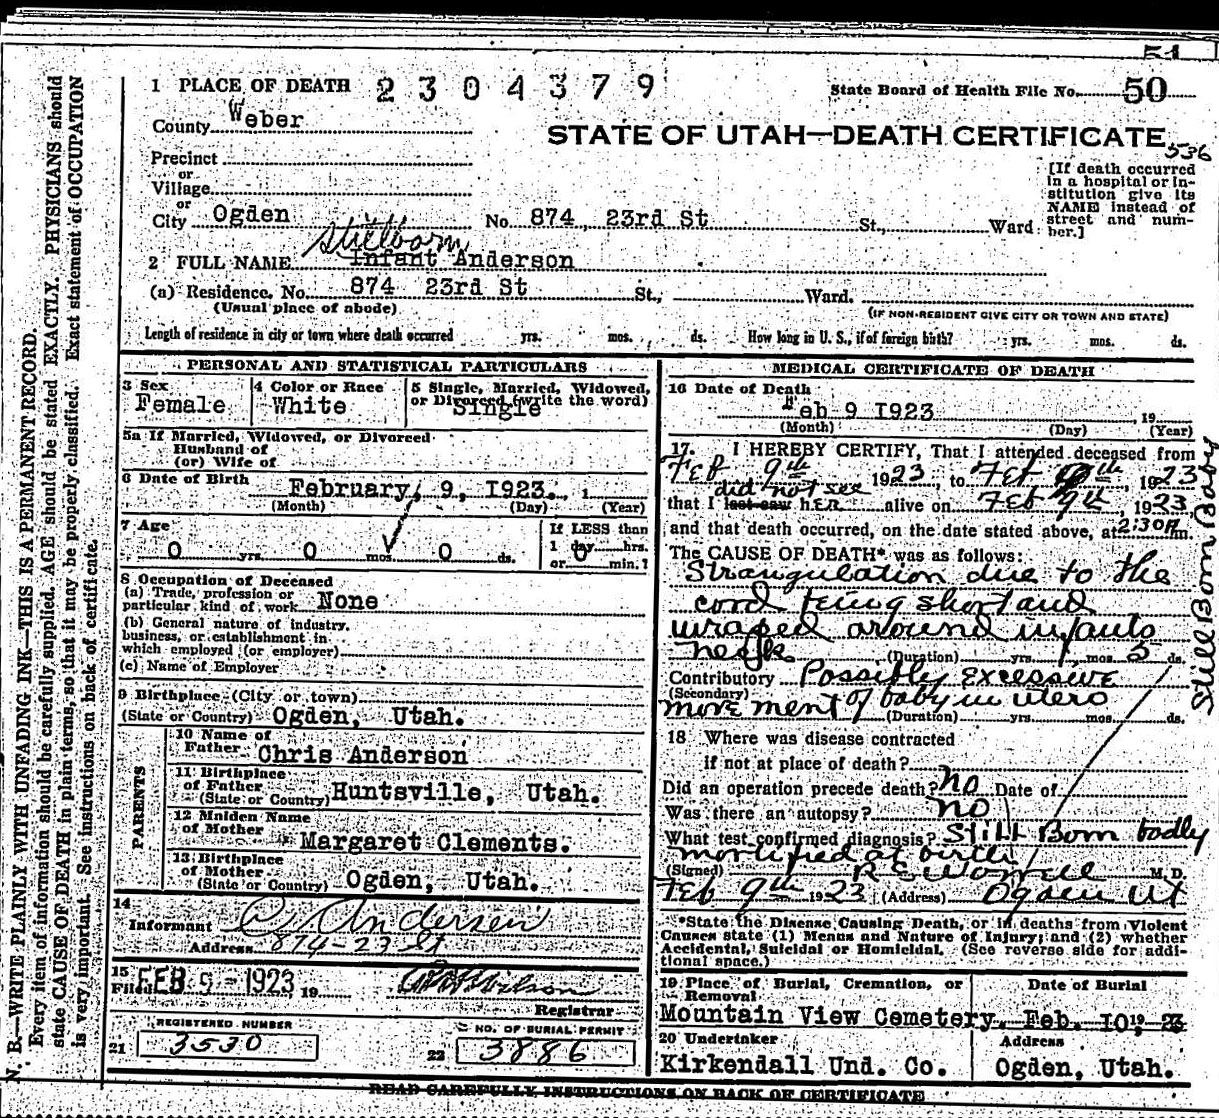 51
1 PLACE OF DEATH 2304379
State Board of Health File No. 50
County Weber
STATE OF UTAH—DEATH CERTIFICATE
536
Precinct
or
Village
or
City Ogden No. 874 23rd St St., Ward
[If death occurred
in a hospital or in-
stitution give its
NAME instead of
street and num-
ber.]
Stillborn
2 FULL NAME Infant Anderson
(a) Residence. No. 874 23rd St St., Ward.
(Usual place of abode) (IF NON-RESIDENT GIVE CITY OR TOWN AND STATE)
Length of residence in city or town where death occurred yrs. mos. ds. How long in U. S., if of foreign birth? yrs. mos. ds.
PERSONAL AND STATISTICAL PARTICULARS
3 Sex 4 Color or Race 5 Single, Married, Widowed,
or Divorced (write the word)
Female White Single
5a If Married, Widowed, or Divorced
Husband of
(or) Wife of
6 Date of Birth February, 9, 1923. , 1
(Month) (Day) (Year)
7 Age If LESS than
0 yrs. 0 mos. 0 ds. 1 day 0 hrs.
or min.?
8 Occupation of Deceased
(a) Trade, profession or
particular kind of work None
(b) General nature of industry,
business, or establishment in
which employed (or employer)
(c) Name of Employer
9 Birthplace (City or town)
(State or Country) Ogden, Utah.
PARENTS
10 Name of
Father Chris Anderson
11 Birthplace
of Father
(State or Country) Huntsville, Utah.
12 Maiden Name
of Mother Margaret Clements.
13 Birthplace
of Mother
(State or Country) Ogden, Utah.
14
Informant C. Andersen
Address 874-23 St
15
Filed FEB 5 - 1923, 19
Wilson
Registrar
REGISTERED NUMBER NO. OF BURIAL PERMIT
21 3530 22 3886
MEDICAL CERTIFICATE OF DEATH
16 Date of Death
Feb 9 1923 , 19
(Month) (Day) (Year)
17. I HEREBY CERTIFY, That I attended deceased from
Feb 9th 1923, to Feb 9th, 1923
did not see
that I last saw hER alive on Feb 9th, 1923
and that death occurred, on the date stated above, at 2:30 A.m.
The CAUSE OF DEATH* was as follows:
Strangulation due to the
cord being short and
wraped around infants
neck (Duration) yrs. mos. 5 ds.
Contributory Possibly Excessive
(Secondary)
movement of baby in utero
(Duration) yrs. mos. ds.
18 Where was disease contracted
if not at place of death?
Did an operation precede death? no Date of
Was there an autopsy? no
What test confirmed diagnosis? Still Born badly
mortified at birth
(Signed) R E Worrell M. D.
Feb 9th 1923 (Address) Ogden Ut
*State the Disease Causing Death, or in deaths from Violent
Causes state (1) Means and Nature of Injury; and (2) whether
Accidental, Suicidal or Homicidal. (See reverse side for addi-
tional space.)
19 Place of Burial, Cremation, or Date of Burial
Removal
Mountain View Cemetery. Feb. 10, 19 23
20 Undertaker Address
Kirkendall Und. Co. Ogden, Utah.
READ CAREFULLY INSTRUCTIONS ON BACK OF CERTIFICATE
Still Born Baby
N. B.—WRITE PLAINLY WITH UNFADING INK—THIS IS A PERMANENT RECORD.
Every item of information should be carefully supplied. AGE should be stated EXACTLY. PHYSICIANS should
state CAUSE OF DEATH in plain terms, so that it may be properly classified. Exact statement of OCCUPATION
is very important. See instructions on back of certificate.